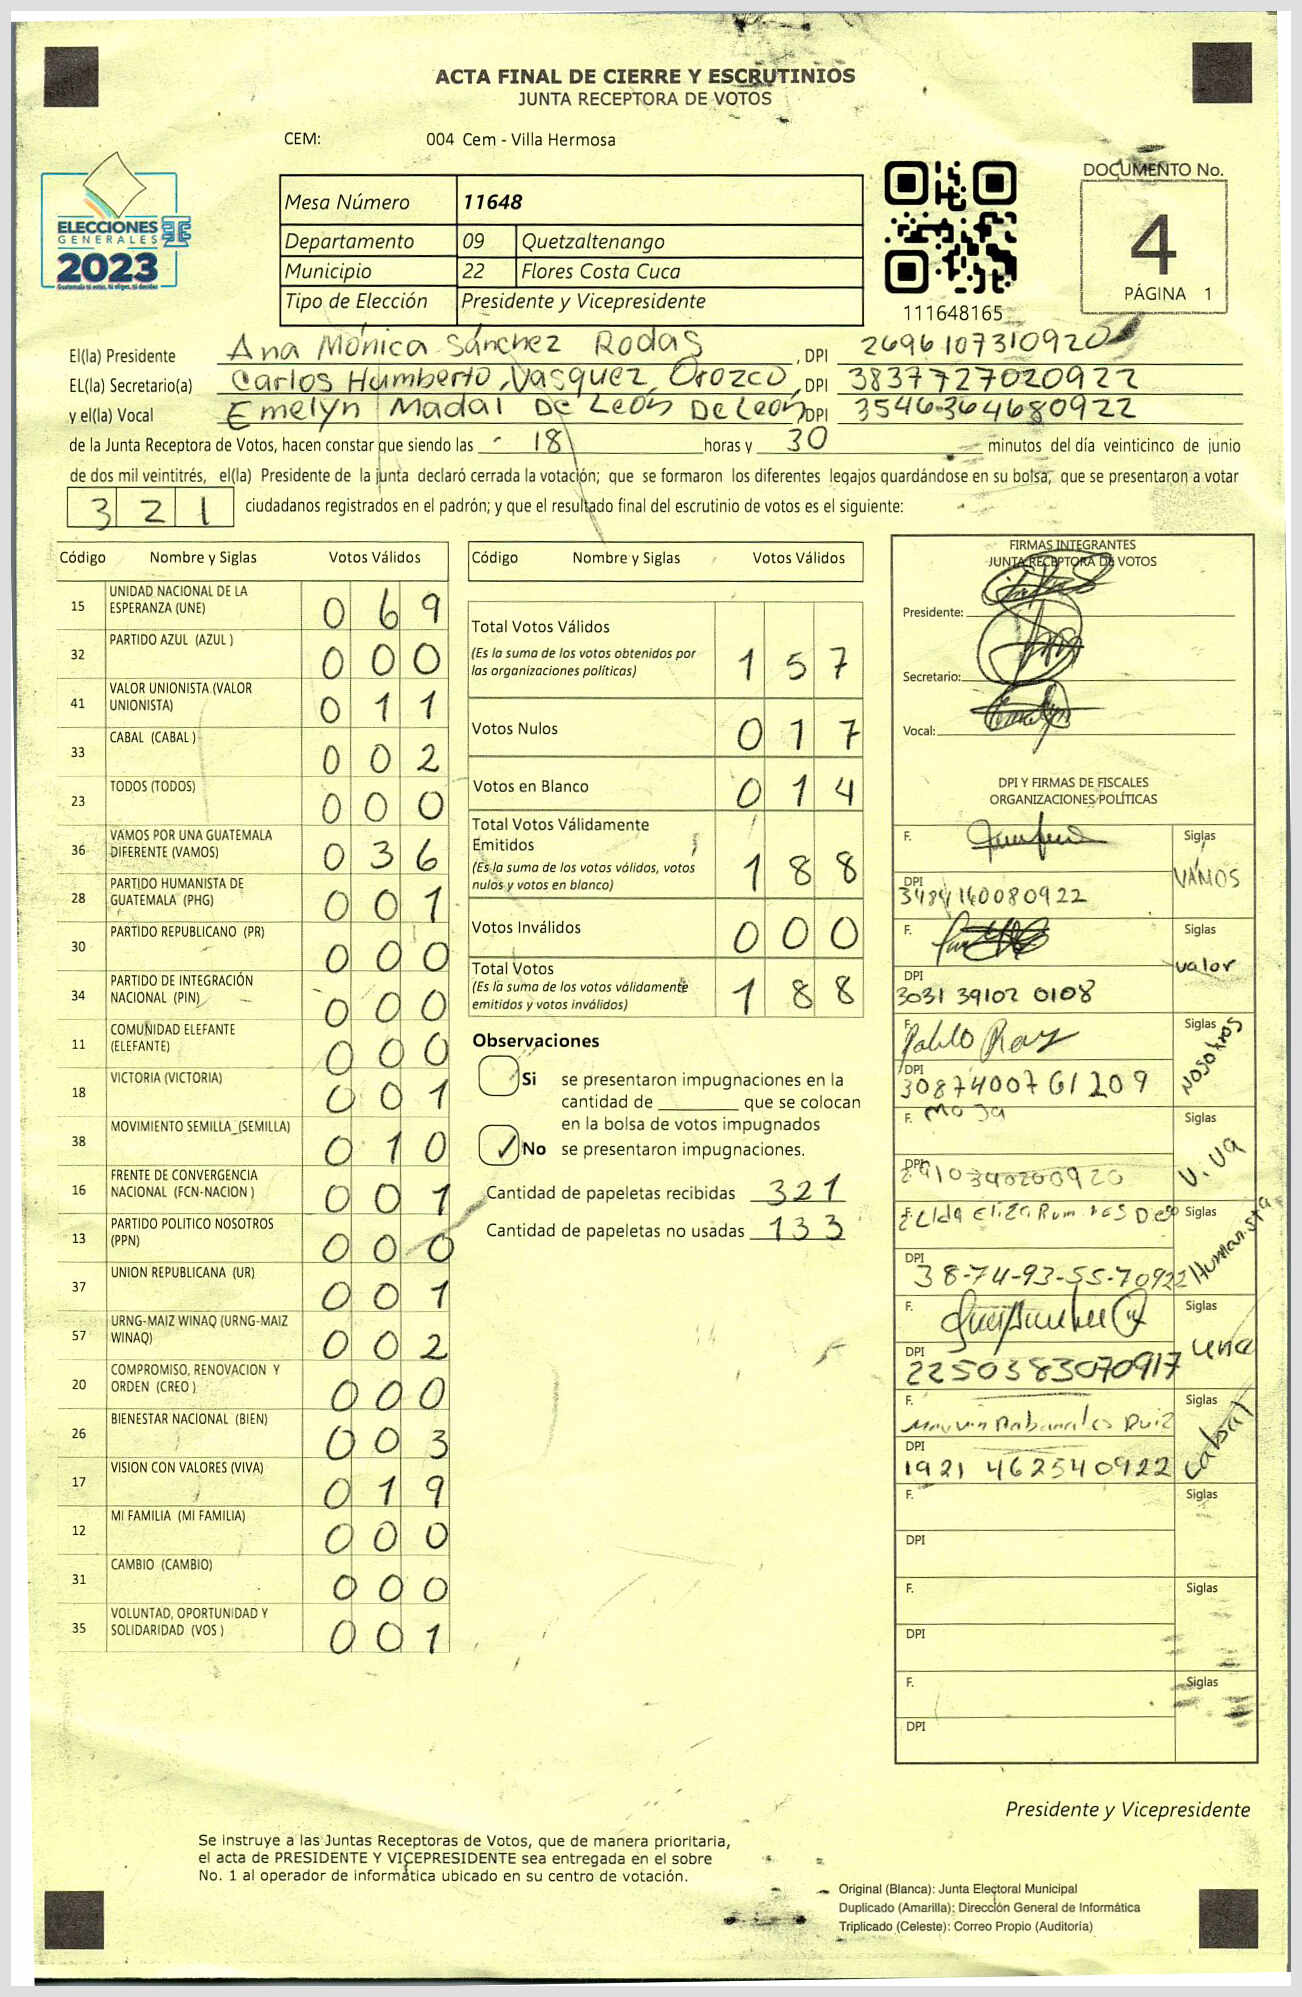 ACTA FINAL DE CIERRE Y ESCRUTINIOS
JUNTA RECEPTORA DE VOTOS
CEM: 004 Cem - Villa Hermosa
ELECCIONES
GENERALES
2023
Mesa Número 11648
Departamento 09 Quetzaltenango
Municipio 22 Flores Costa Cuca
Tipo de Elección Presidente y Vicepresidente
111648165
DOCUMENTO No.
4
PÁGINA 1
El(la) Presidente Ana Mónica Sánchez Rodas, DPI 2696107310920
EL(la) Secretario(a) Carlos Humberto Vasquez Orozco, DPI 3837727020922
y el(la) Vocal Emelyn Madai De León De León, DPI 3546364680922
de la Junta Receptora de Votos, hacen constar que siendo las 18 horas y 30 minutos del día veinticinco de junio
de dos mil veintitrés, el(la) Presidente de la junta declaró cerrada la votación; que se formaron los diferentes legajos guardándose en su bolsa; que se presentaron a votar
321 ciudadanos registrados en el padrón; y que el resultado final del escrutinio de votos es el siguiente:
Código Nombre y Siglas Votos Válidos
15 UNIDAD NACIONAL DE LA ESPERANZA (UNE) 069
32 PARTIDO AZUL (AZUL ) 000
41 VALOR UNIONISTA (VALOR UNIONISTA) 011
33 CABAL (CABAL ) 002
23 TODOS (TODOS) 000
36 VAMOS POR UNA GUATEMALA DIFERENTE (VAMOS) 036
28 PARTIDO HUMANISTA DE GUATEMALA (PHG) 001
30 PARTIDO REPUBLICANO (PR) 000
34 PARTIDO DE INTEGRACIÓN NACIONAL (PIN) 000
11 COMUNIDAD ELEFANTE (ELEFANTE) 000
18 VICTORIA (VICTORIA) 001
38 MOVIMIENTO SEMILLA (SEMILLA) 010
16 FRENTE DE CONVERGENCIA NACIONAL (FCN-NACION ) 001
13 PARTIDO POLITICO NOSOTROS (PPN) 000
37 UNION REPUBLICANA (UR) 001
57 URNG-MAIZ WINAQ (URNG-MAIZ WINAQ) 002
20 COMPROMISO, RENOVACION Y ORDEN (CREO ) 000
26 BIENESTAR NACIONAL (BIEN) 003
17 VISION CON VALORES (VIVA) 019
12 MI FAMILIA (MI FAMILIA) 000
31 CAMBIO (CAMBIO) 000
35 VOLUNTAD, OPORTUNIDAD Y SOLIDARIDAD (VOS ) 001
Código Nombre y Siglas Votos Válidos
Total Votos Válidos 157
(Es la suma de los votos obtenidos por
las organizaciones políticas)
Votos Nulos 017
Votos en Blanco 014
Total Votos Válidamente
Emitidos 188
(Es la suma de los votos válidos, votos
nulos y votos en blanco)
Votos Inválidos 000
Total Votos 188
(Es la suma de los votos válidamente
emitidos y votos inválidos)
Observaciones
Si se presentaron impugnaciones en la
cantidad de ________ que se colocan
en la bolsa de votos impugnados
✓ No se presentaron impugnaciones.
Cantidad de papeletas recibidas 321
Cantidad de papeletas no usadas 133
FIRMAS INTEGRANTES
JUNTA RECEPTORA DE VOTOS
Presidente:
Secretario:
Vocal:
DPI Y FIRMAS DE FISCALES
ORGANIZACIONES POLÍTICAS
F. Siglas VAMOS
DPI 3484140080922
F. Siglas valor
DPI 3031 39102 0108
F. Pablo Siglas NOSOTROS
DPI 3087400761209
F. Siglas
DPI 2910340200920
F. Siglas Humanista
DPI 38-74-93-55-70922
F. Siglas une
DPI 2250383070917
F. Siglas Cabal
DPI 1921 462540922
F. Siglas
DPI
F. Siglas
DPI
F. Siglas
DPI
Presidente y Vicepresidente
Se instruye a las Juntas Receptoras de Votos, que de manera prioritaria,
el acta de PRESIDENTE Y VICEPRESIDENTE sea entregada en el sobre
No. 1 al operador de informática ubicado en su centro de votación.
Original (Blanca): Junta Electoral Municipal
Duplicado (Amarilla): Dirección General de Informática
Triplicado (Celeste): Correo Propio (Auditoría)